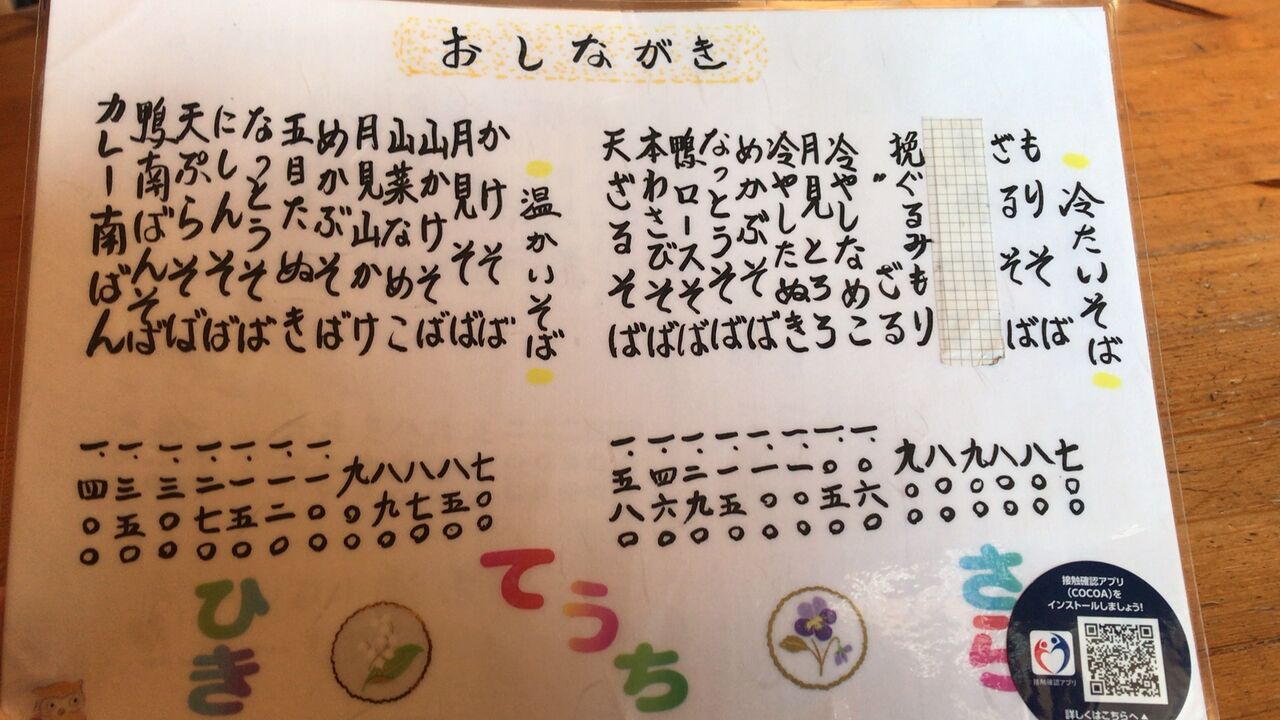 おしながき
冷たいそば
もりそば
ざるそば
挽ぐるみもり
〃 ざる
冷やしなめこ
月見とろろ
冷やしたぬき
めかぶそば
なっとうそば
鴨ロースそば
本わさびそば
天ざるそば
七〇〇
八〇〇
八〇〇
九〇〇
八〇〇
九〇〇
一、〇六〇
一、〇五〇
一、一〇〇
一、一〇〇
一、一五〇
一、二九〇
一、四六〇
一、五八〇
温かいそば
かけそば
月見そば
山かけそば
山菜なめこ
月見山かけ
めかぶそば
五目たぬき
なっとうそば
にしんそば
天ぷらそば
鴨南ばんそば
カレー南ばん
七〇〇
八五〇
八七〇
八九〇
九〇〇
一、一〇〇
一、一二〇
一、一五〇
一、二七〇
一、三〇〇
一、三五〇
一、四〇〇
ひき
てうち
さ
接触確認アプリ
(COCOA)を
インストールしましょう!
接触確認アプリ
詳しくはこちらへ▲